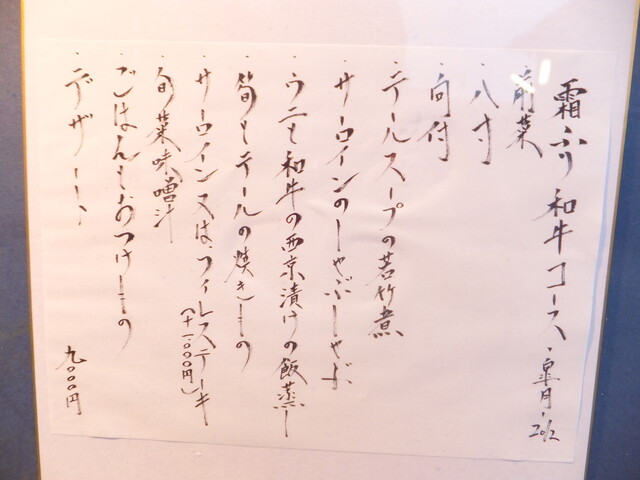 霜ふり 和牛コース・皐月・2012
・前菜
・八寸
・向付
・テールスープの若竹煮
・サーロインのしゃぶしゃぶ
・ウニと和牛の西京漬けの飯蒸し
・筍とテールの焼きもの
・サーロイン又はフィレステーキ
(+1.000円)
・旬菜味噌汁
・ごはんとおつけもの
・デザート
九.000円